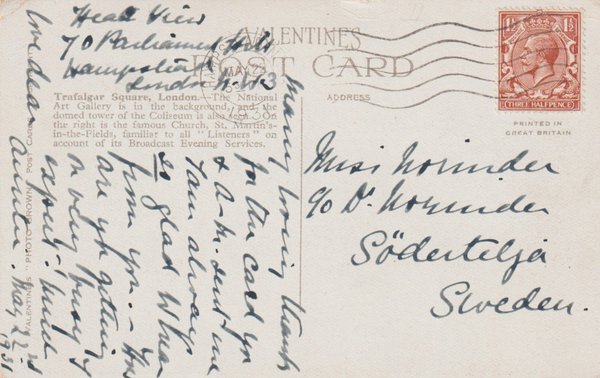 Heath View
70 Parliament Hill
Hampstead
London N.W.3
VALENTINES
POST CARD
Trafalgar Square, London.—The National
Art Gallery is in the background, and the
domed tower of the Coliseum is also seen. On
the right is the famous Church, St. Martin's-
in-the-Fields, familiar to all "Listeners" on
account of its Broadcast Evening Services.
ADDRESS
1½ 1½
THREE HALFPENCE
PRINTED IN
GREAT BRITAIN
Miss Norinder
c/o Dr Norinder
Södertelje
Sweden.
Many loving thanks
for the card you
& A.M. sent me
I am always
so glad to hear
from you. – You
are getting
on very busy I
expect. Much
love dear
Auntie. May 22nd
1931
VALENTINES "PHOTO BROWN" POST CARD
MAY